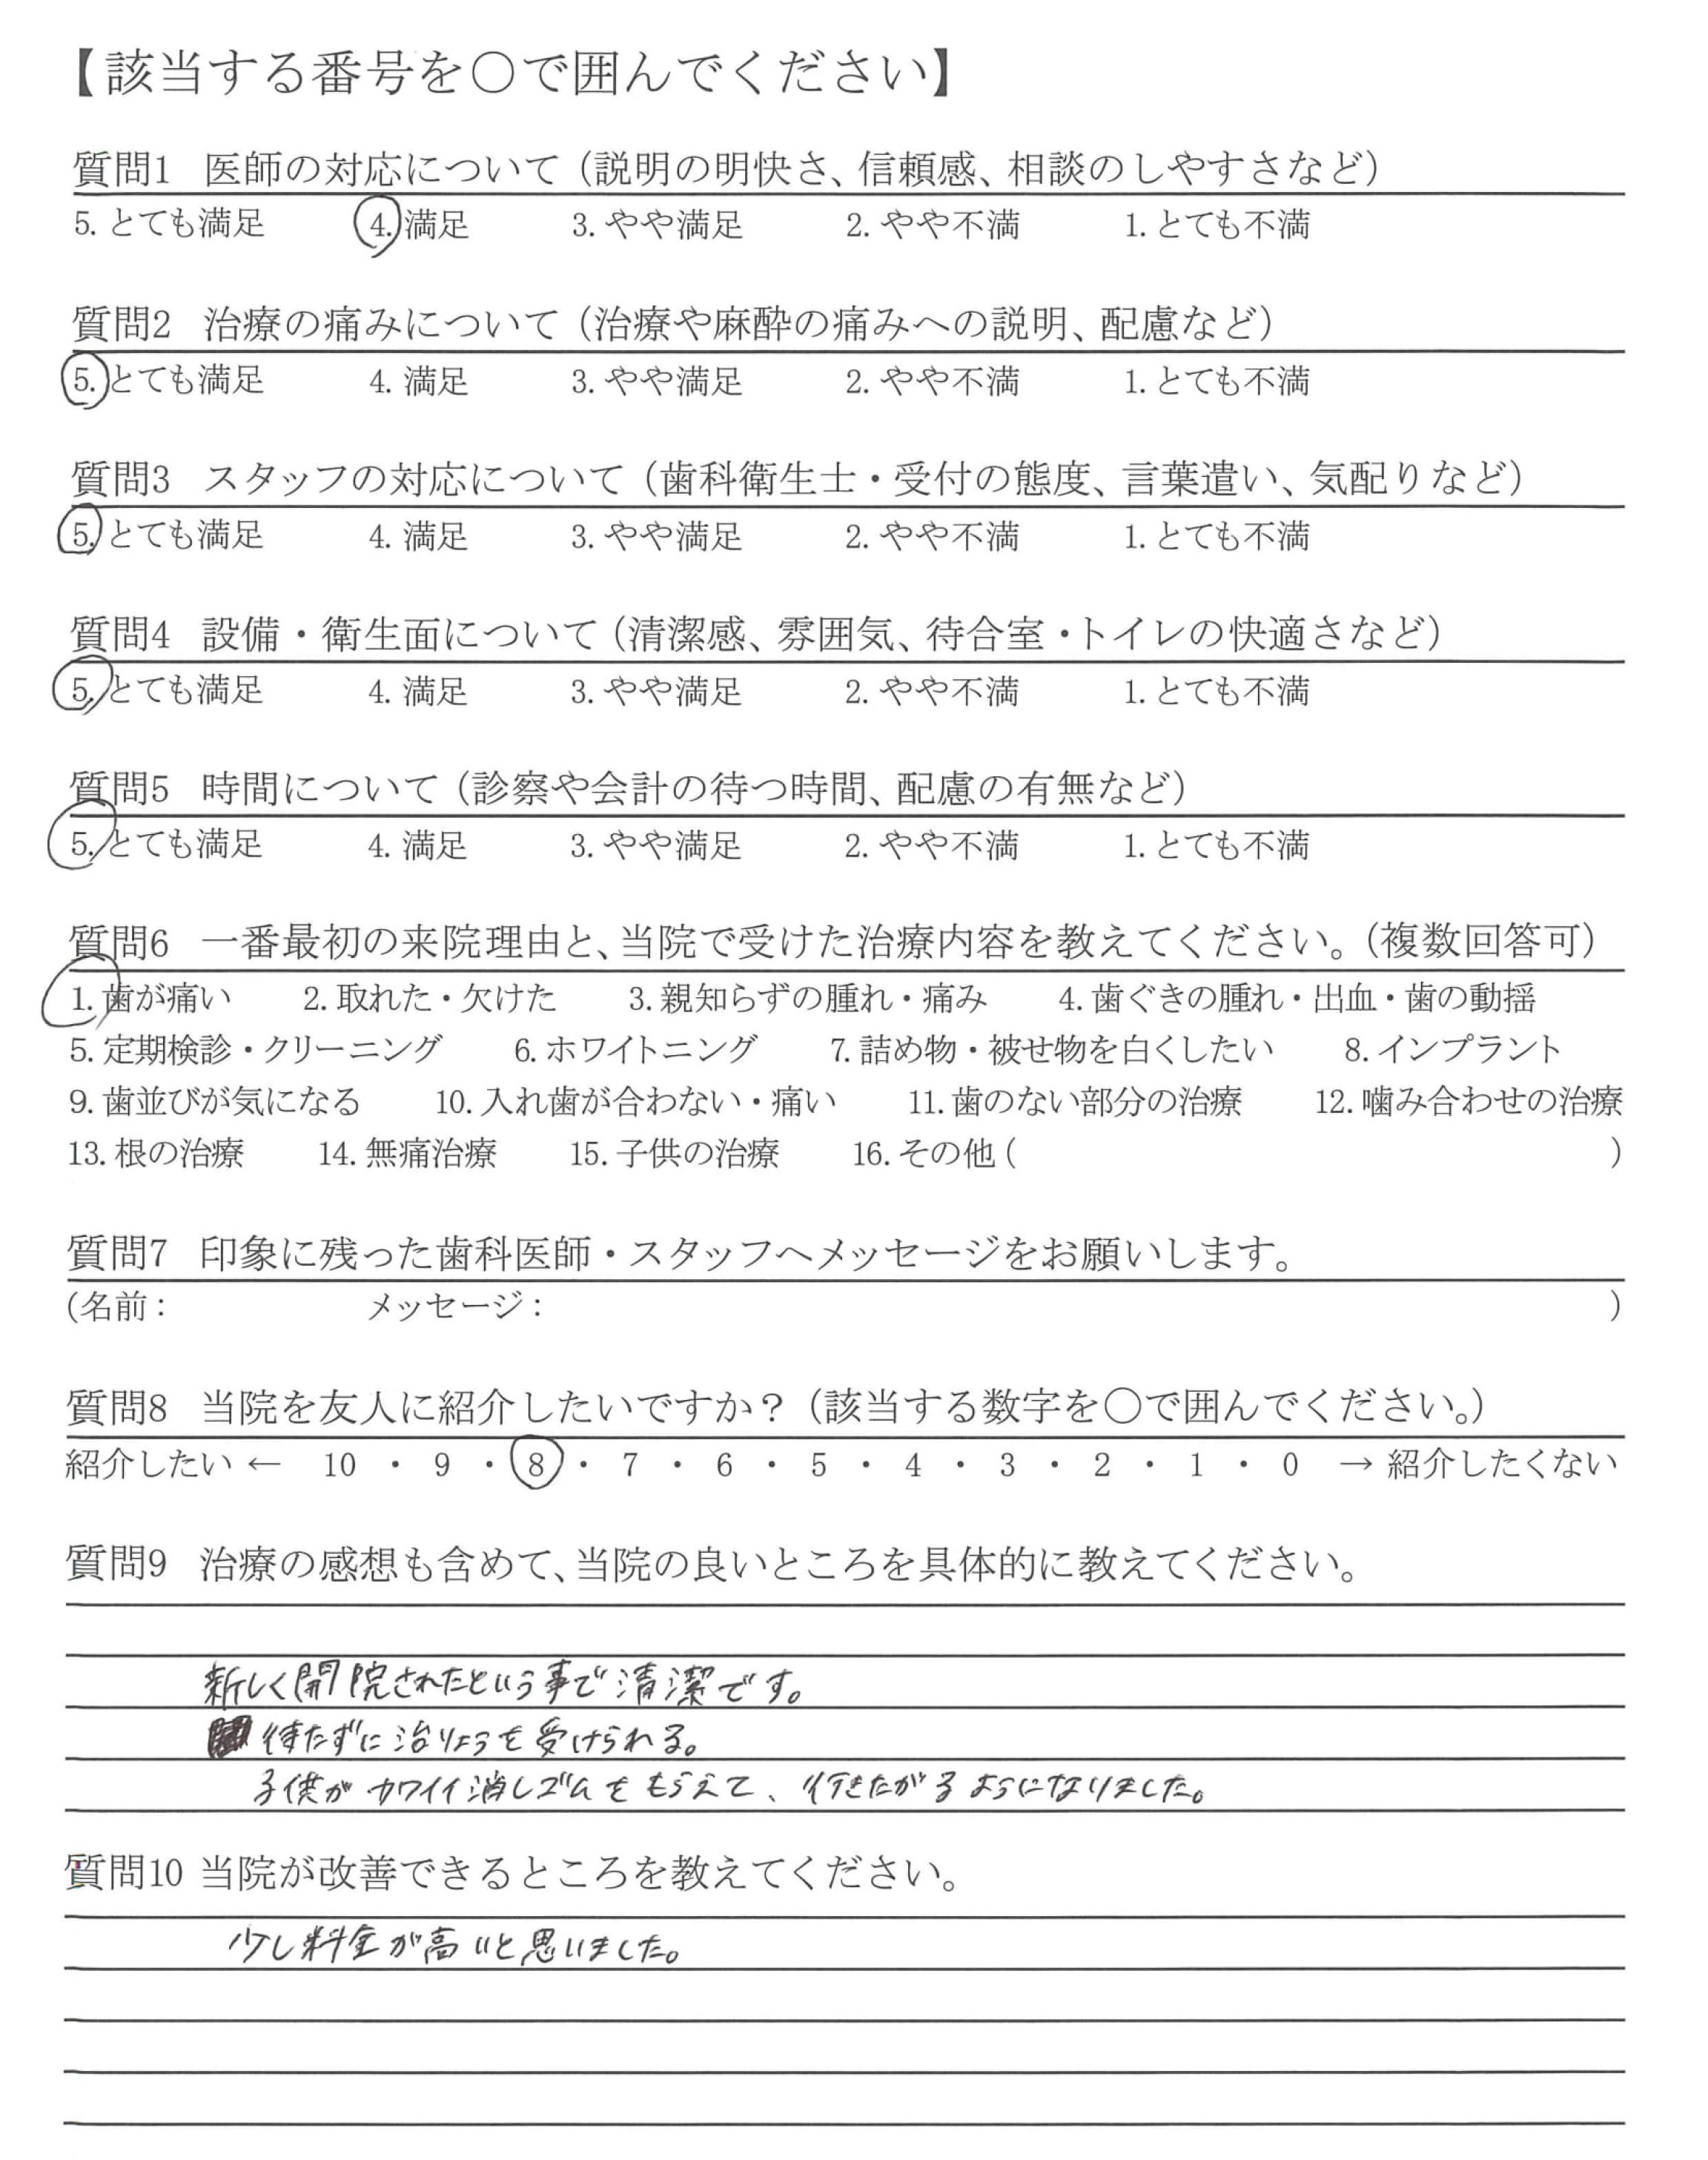 【該当する番号を〇で囲んでください】
質問1 医師の対応について（説明の明快さ、信頼感、相談のしやすさなど）
5. とても満足 4. 満足 3. やや満足 2. やや不満 1. とても不満
質問2 治療の痛みについて（治療や麻酔の痛みへの説明、配慮など）
5. とても満足 4. 満足 3. やや満足 2. やや不満 1. とても不満
質問3 スタッフの対応について（歯科衛生士・受付の態度、言葉遣い、気配りなど）
5. とても満足 4. 満足 3. やや満足 2. やや不満 1. とても不満
質問4 設備・衛生面について（清潔感、雰囲気、待合室・トイレの快適さなど）
5. とても満足 4. 満足 3. やや満足 2. やや不満 1. とても不満
質問5 時間について（診察や会計の待つ時間、配慮の有無など）
5. とても満足 4. 満足 3. やや満足 2. やや不満 1. とても不満
質問6 一番最初の来院理由と、当院で受けた治療内容を教えてください。（複数回答可）
1. 歯が痛い 2. 取れた・欠けた 3. 親知らずの腫れ・痛み 4. 歯ぐきの腫れ・出血・歯の動揺
5. 定期検診・クリーニング 6. ホワイトニング 7. 詰め物・被せ物を白くしたい 8. インプラント
9. 歯並びが気になる 10. 入れ歯が合わない・痛い 11. 歯のない部分の治療 12. 噛み合わせの治療
13. 根の治療 14. 無痛治療 15. 子供の治療 16. その他 ( )
質問7 印象に残った歯科医師・スタッフへメッセージをお願いします。
(名前： メッセージ： )
質問8 当院を友人に紹介したいですか？（該当する数字を〇で囲んでください。）
紹介したい ← 10 ・ 9 ・ 8 ・ 7 ・ 6 ・ 5 ・ 4 ・ 3 ・ 2 ・ 1 ・ 0 → 紹介したくない
質問9 治療の感想も含めて、当院の良いところを具体的に教えてください。
新しく開院されたという事で清潔です。
待たずに治りょうを受けられる。
子供がカワイイ消しゴムをもらえて、行きたがるようになりました。
質問10 当院が改善できるところを教えてください。
少し料金が高いと思いました。